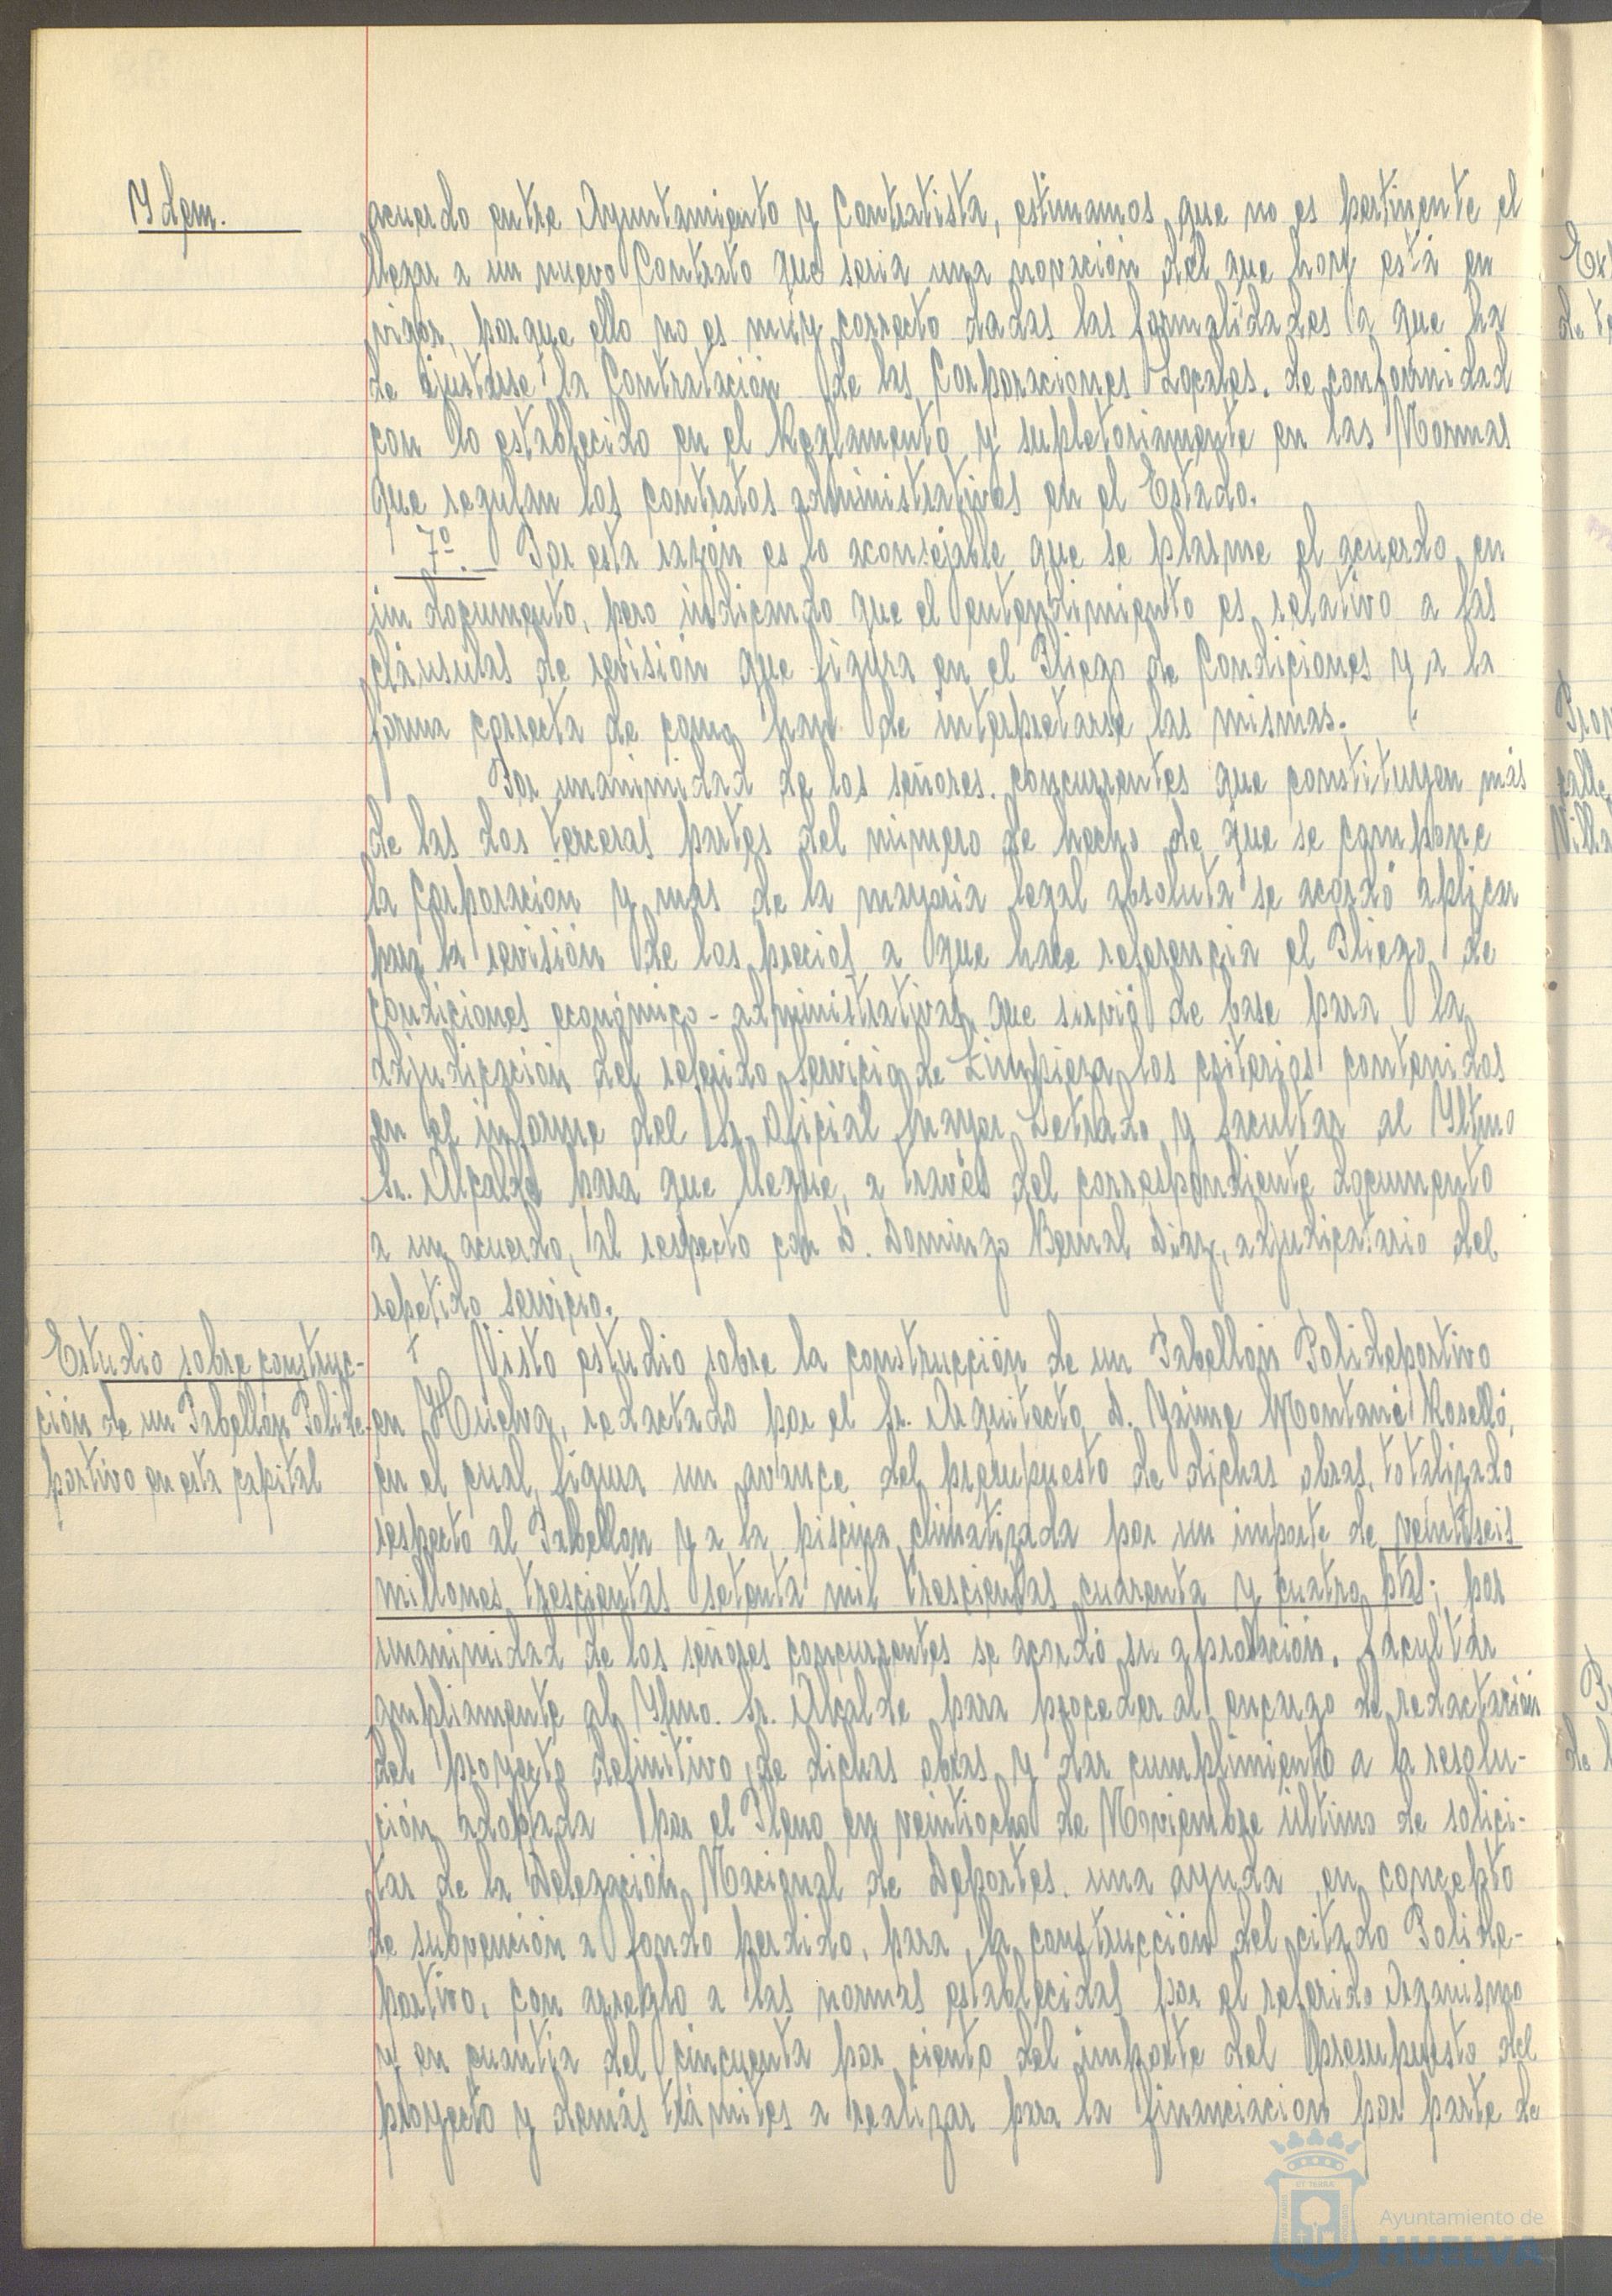 Ydem.
acuerdo entre Ayuntamiento y Contratista, estimamos que no es pertinente el
llegar a un nuevo Contrato que seria una novación del que hoy está en
vigor, porque ello no es muy correcto dadas las formalidades a que ha
de ajustarse la Contratación de las Corporaciones Locales. de conformidad
con lo establecido en el Reglamento y supletoriamente en las Normas
que regulan los contratos administrativos en el Estado.
7º.- Por esta razón es lo aconsejable que se plasme el acuerdo en
un documento, pero indicando que el entendimiento es relativo a las
cláusulas de revisión que figura en el Pliego de Condiciones y a la
forma correcta de como han de interpretarse las mismas.
Por unanimidad de los señores. concurrentes que constituyen más
de las dos terceras partes del número de hecho de que se compone
la Corporación y más de la mayoria legal absoluta se acordó aplicar
para la revisión de los precios a que hace referencia el Pliego de
condiciones económico-administrativas que sirvió de base para la
adjudicación del referido servicio de Limpieza los criterios contenidos
en el informe del Sr. Oficial Mayor Letrado y facultar al Yltmo
Sr. Alcalde para que llegue, a través del correspondiente documento
a un acuerdo, al respecto con D. Domingo Bernal Diaz, adjudicatario del
repetido servicio.
Estudio sobre construc-
ción de un Pabellón Polide-
portivo en esta capital
Visto estudio sobre la construcción de un Pabellón Polideportivo
en Huelva, redactado por el Sr. Arquitecto D. Yaime Montané Roselló,
en el cual figura un avance del presupuesto de dichas obras, totalizado
respecto al Pabellon y a la piscina climatizada por un importe de veintiseis
millones trescientas setenta mil trescientas cuarenta y cuatro ptas; por
unanimidad de los señores concurrentes se acordó su aprobación. facultar
ampliamente al Yltmo. Sr. Alcalde para proceder al encargo de redactación
del proyecto definitivo de dichas obras y dar cumplimiento a la resolu-
ción adoptada por el Pleno en veintiocho de Noviembre último de solici-
tar de la Delegación Nacional de Deportes. una ayuda en concepto
de subvención a fondo perdido, para la construcción del citado Polide-
portivo, con arreglo a las normas establecidas por el referido Organismo
y en cuantia del cincuenta por ciento del importe del presupuesto del
proyecto y demás trámites a realizar para la financiación por parte de
Ayuntamiento de
HUELVA